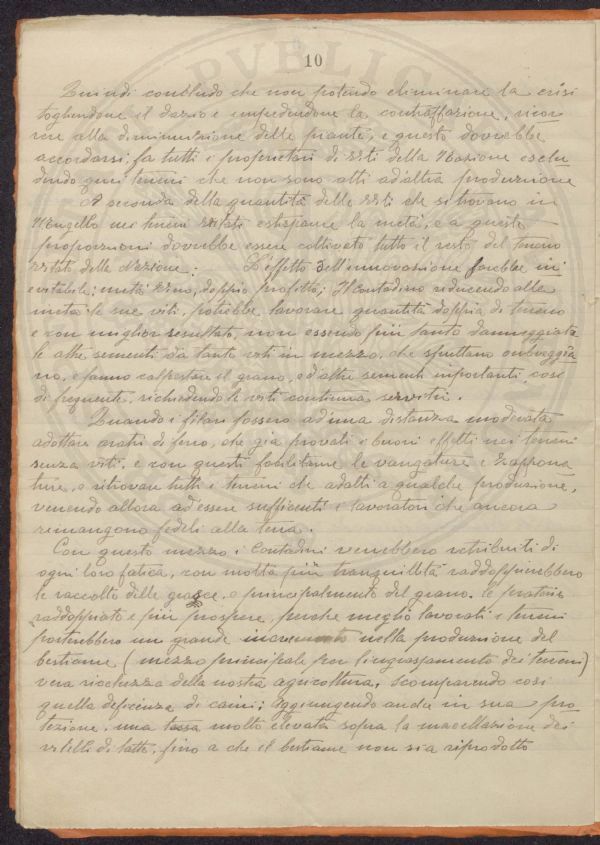 10
PVBLIC
Quindi concludo che non potendo eliminare la crisi
togliendone il dazio e impedendone la contraffazione, ricor
rere alla diminuizione delle piante, e questo dovrebbe
accordarsi fra tutti i proprietari di viti della Nazione esclu
dendo quei terreni che non sono atti ad'altra produzione
A seconda della quantità delle viti che si trovano in
Mugello nei terreni vitati estirpame la metà, e a queste
proporzioni dovrebbe essere coltivato tutto il resto del terreno
vitato della Nazione: L'effetto dell'innovazione sarebbe in
evitabile; metà vino, doppio profitto; Il Contadino riducendo alla
metà le sue viti, potrebbe lavorare quantità doppia di terreno
e con miglior resultato, non essendo più tanto danneggiate
le altre sementi da tante viti in mezzo, che sfruttano ombreggia
no, e fanno calpestare il grano, ed altre sementi importanti, così
di frequente, richiedendo le viti continua servitù.
Quando i filari fossero ad'una distanza moderata
adottare aratri di ferro, che già provati i buoni effetti nei terreni
senza viti, e con questi facilitarne le vangature e zappona
ture, e ritrovan tutti i terreni che adatti a qualche produzione,
venendo allora ad'essere sufficenti i lavoratori che ancora
rimangono fedeli alla terra.
Con questo mezzo i Contadini verrebbero retribuiti di
ogni loro fatica, con molta più tranquillità raddoppierebbero
le raccolte delle grasce, e principalmente del grano. Le praterie
raddoppiate e più prospere, perche meglio lavorati i terreni
porterebbero un grande incremento nella produzione del
bestiame (mezzo principale per l'ingrassamento dei terreni)
vera ricchezza della nostra agricoltura. Scomparendo così
quella deficenza di carni; Aggiungendo anche in sua pro
tezione, una tassa molto elevata sopra la macellazione dei
vitelli di latte, fino a che il bestiame non sia riprodotto